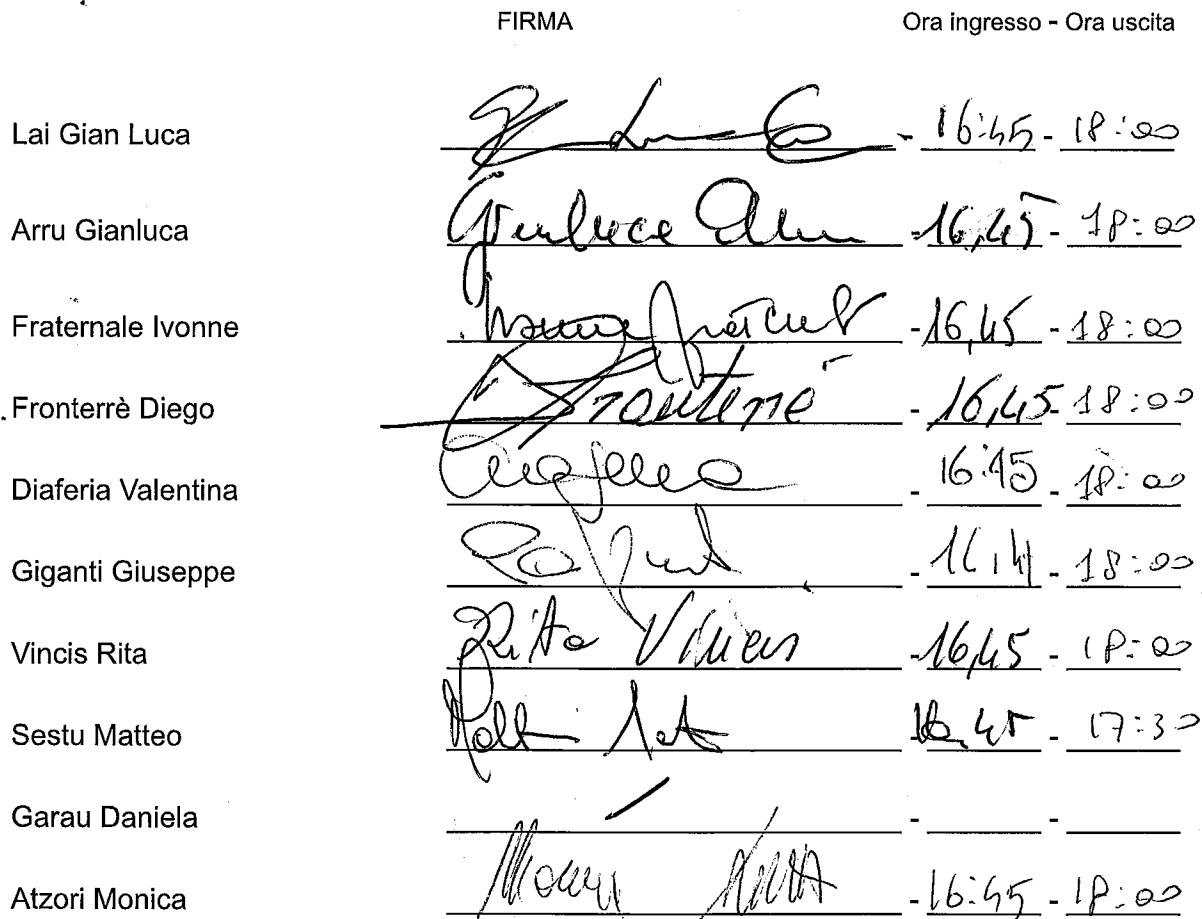 FIRMA Ora ingresso - Ora uscita
Lai Gian Luca - 16:45 - 18:00
Arru Gianluca Gianluca Arru - 16,45 - 18:00
Fraternale Ivonne - 16,45 - 18:00
Fronterrè Diego Fronterré - 16,45 - 18:00
Diaferia Valentina - 16:45 - 18:00
Giganti Giuseppe - - 18:00
Vincis Rita Rita Vincis - 16,45 - 18:00
Sestu Matteo - 16,45 - 17:30
Garau Daniela - -
Atzori Monica - 16:45 - 18:00